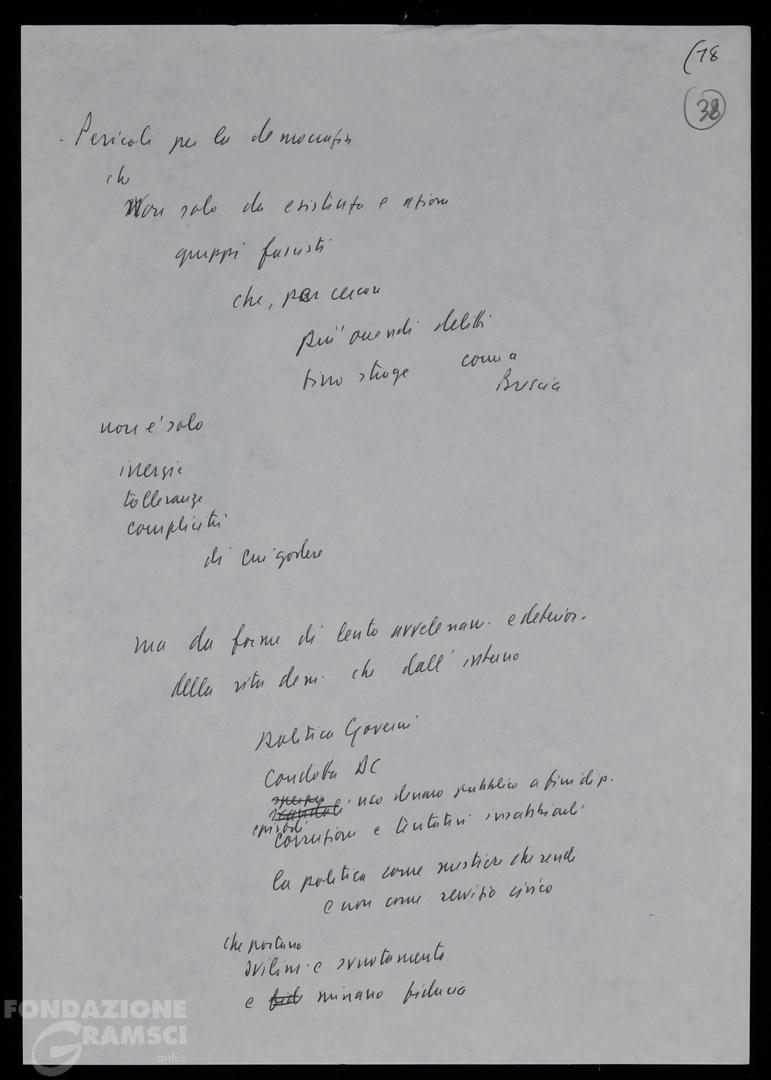 (18
38
- Pericoli per la democrazia
che
Non solo da esistenza e azione
gruppi fascisti
che, per cercare
più orrendi delitti
fino strage come a
Brescia
non è solo
inerzie
tolleranze
complicità
di cui godere
ma da forme di lento avvelenam. e deterior.
della vita dem. che dall'interno
Politica Governi
Condotta DC
scandali uso denaro pubblico a fini di p.
episodi
corruzione e tentativi insabbiarli
la politica come mestiere che rende
e non come servizio civico
che portano
svilim. e svuotamento
e fid minano fiducia
FONDAZIONE
GRAMSCI
onlus